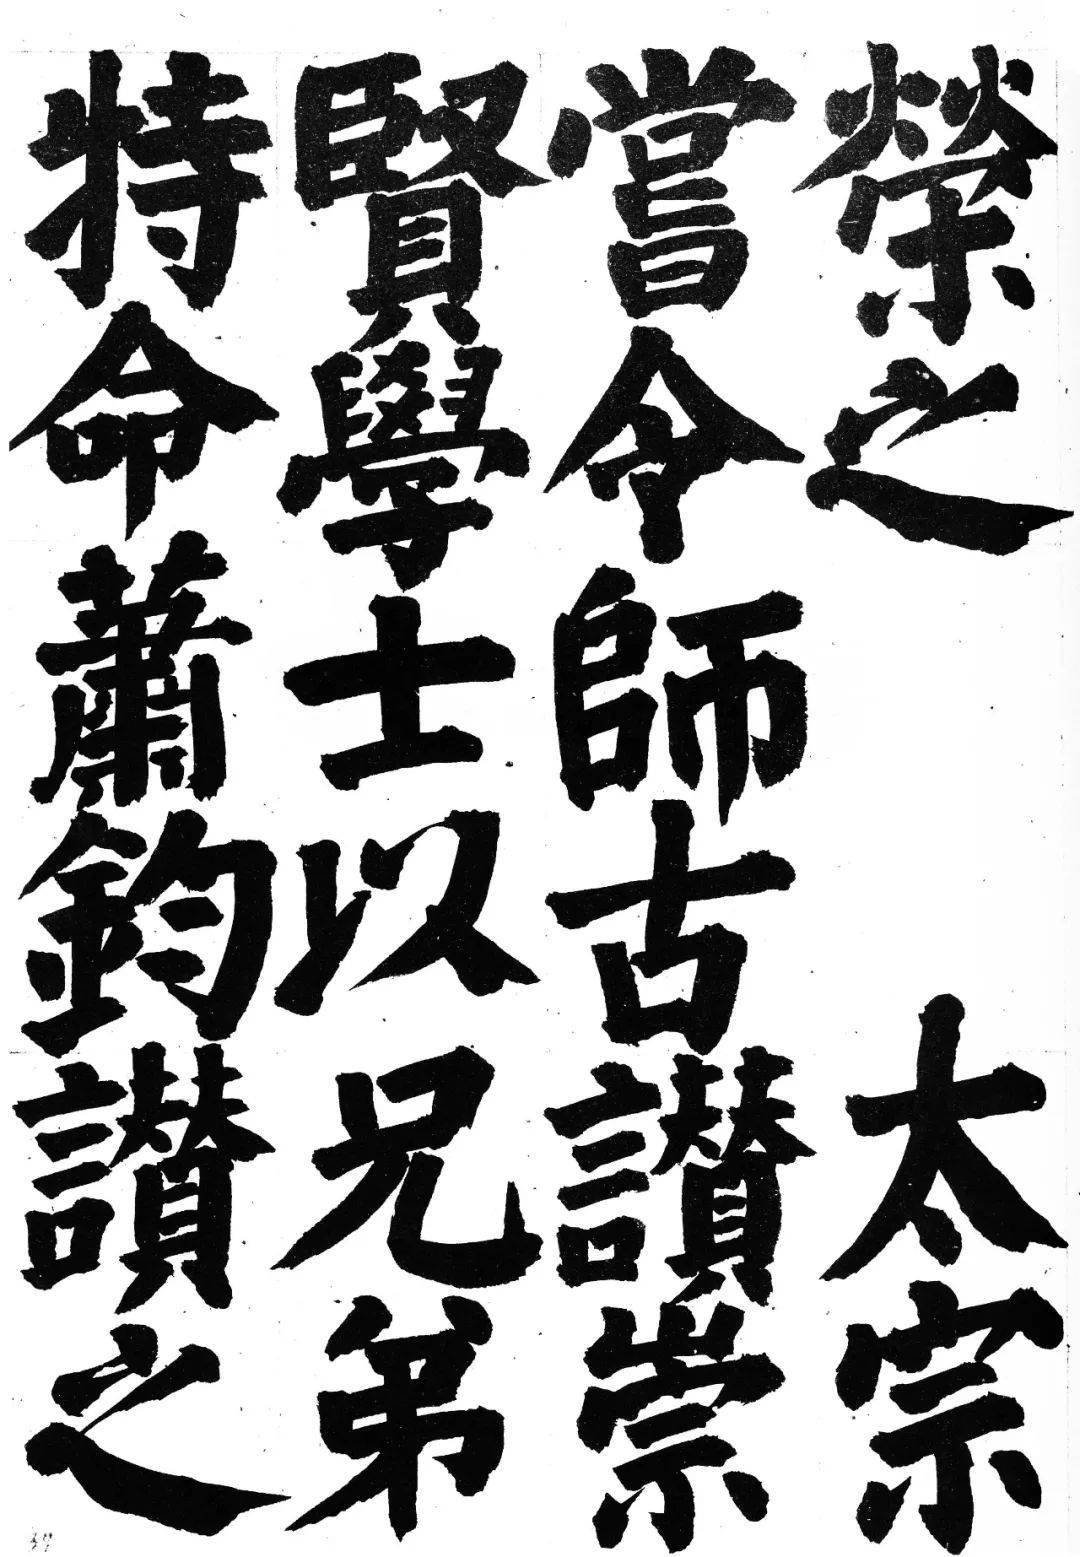 榮之　太宗
嘗令師古讃崇
賢學士以兄弟
特命蕭鈞讃之